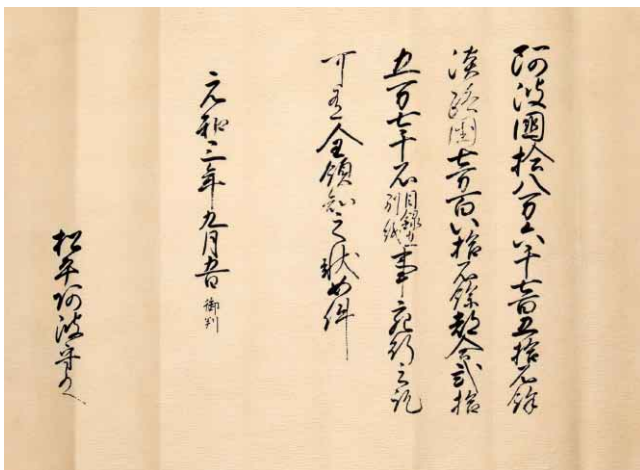 阿波國拾八万六千七百五拾石餘
淡路國七万百八拾石餘都合弐拾
五万七千石目録在別紙事宛行之訖
可全領知之状如件
元和三年九月五日御判
松平阿波守とのへ